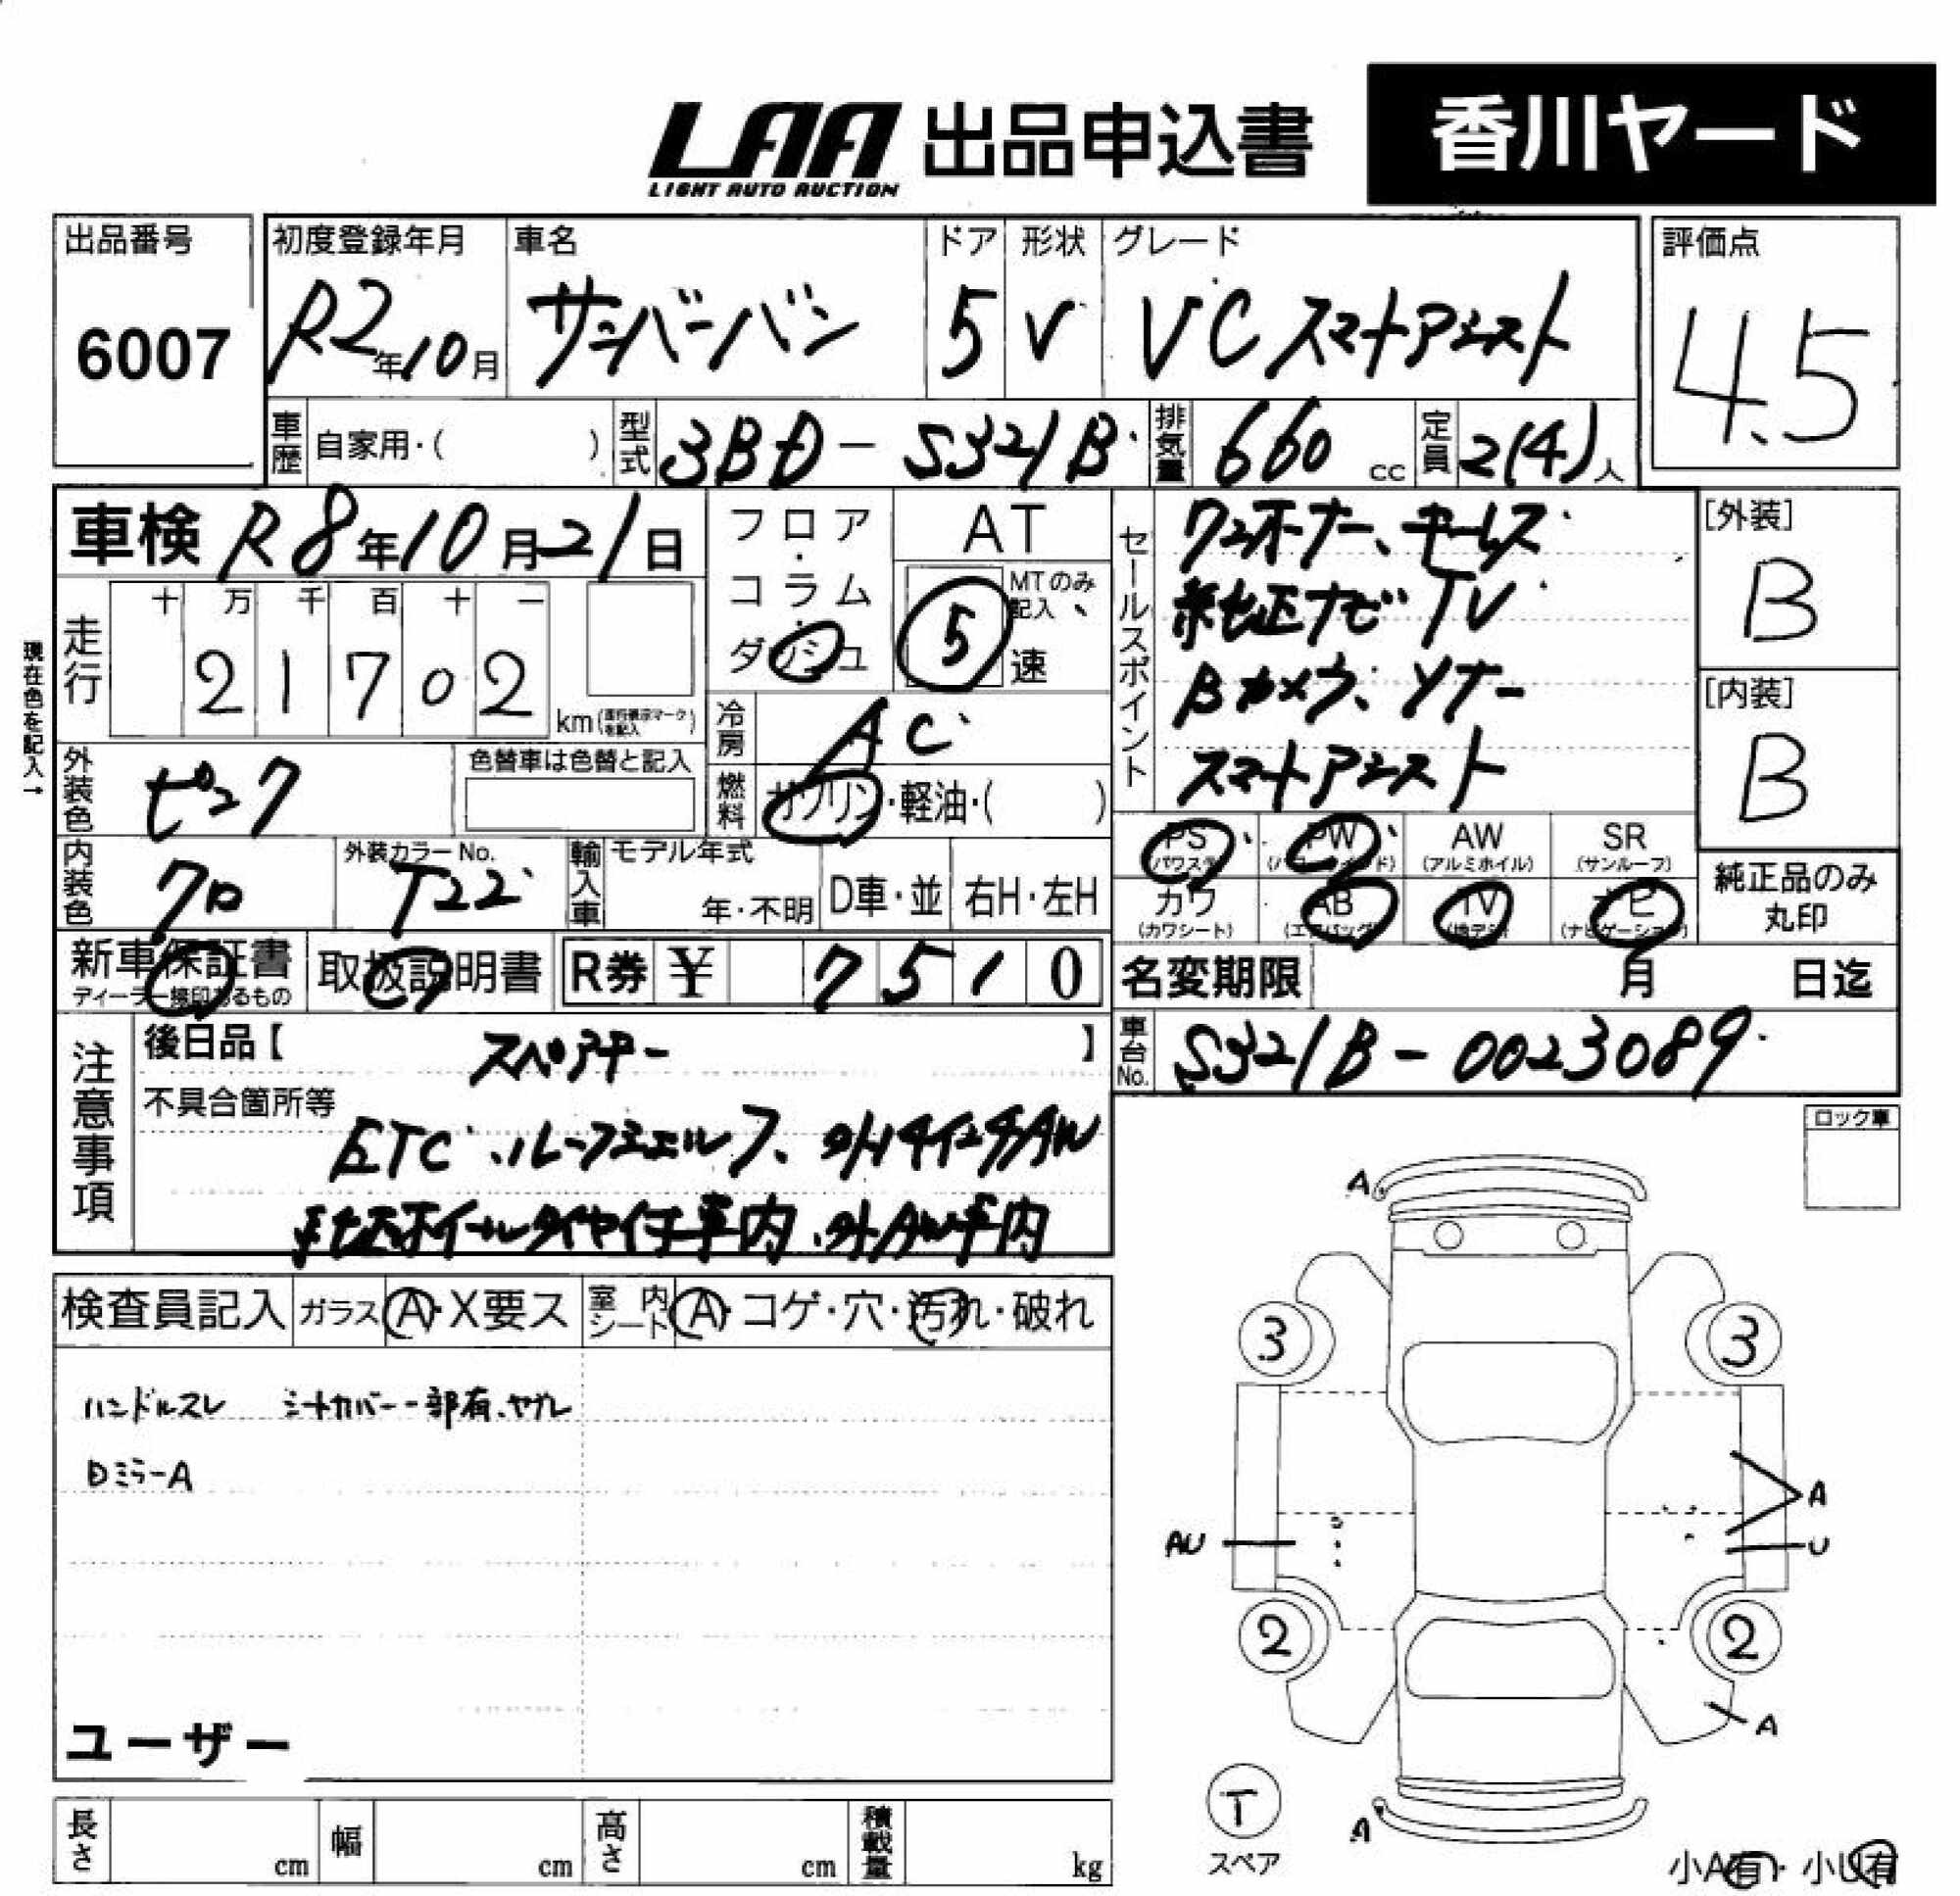 LAA 出品申込書
LIGHT AUTO AUCTION
香川ヤード
出品番号
6007
初度登録年月
R2年10月
車名
サンバーバン
ドア
5
形状
V
グレード
VC スマートアシスト
評価点
4.5
車歴 自家用・( )
型式 3BD-S321B
排気量 660 cc
定員 2(4)人
車検 R8年10月21日
走行
十 万 千 百 十 一
2 1 7 0 2
km(走行表示マークを記入)
現在色を記入→
外装色 ピンク
色替車は色替と記入
内装色 クロ
外装カラーNo.
T22
フロア・コラム・ダッシュ
AT
MTのみ記入
5 速
冷房 AC
燃料 ガソリン・軽油・( )
輸入車 モデル年式
年・不明
D車・並
右H・左H
セールスポイント
ワンオーナー、キーレス
純正ナビ TV
Bカメラ、ソナー
スマートアシスト
[外装]
B
[内装]
B
PS (パワステ)
PW (パワーウィンド)
AW (アルミホイル)
SR (サンルーフ)
カワ (カワシート)
AB (エアバッグ)
TV (地デジ)
ナビ (ナビゲーション)
純正品のみ丸印
新車保証書
ディーラー捺印あるもの
取扱説明書
R券 ¥ 7510
名変期限 月 日迄
注意事項
後日品【 スペアキー 】
不具合箇所等
ETC、ルーフシェルフ、外14インチAW
純正ホイールタイヤ付車内、外AW車内
車台No. S321B-0023089
ロック車
検査員記入
ガラス A・X要ス
室内シート A・コゲ・穴・汚れ・破れ
ハンドルスレ シートカバー一部有、ヤブレ
Dミラー A
ユーザー
A
3 3
A
AU U
2 2
A
T
スペア
A
小A有・小U有
長さ cm
幅 cm
高さ cm
積載量 kg